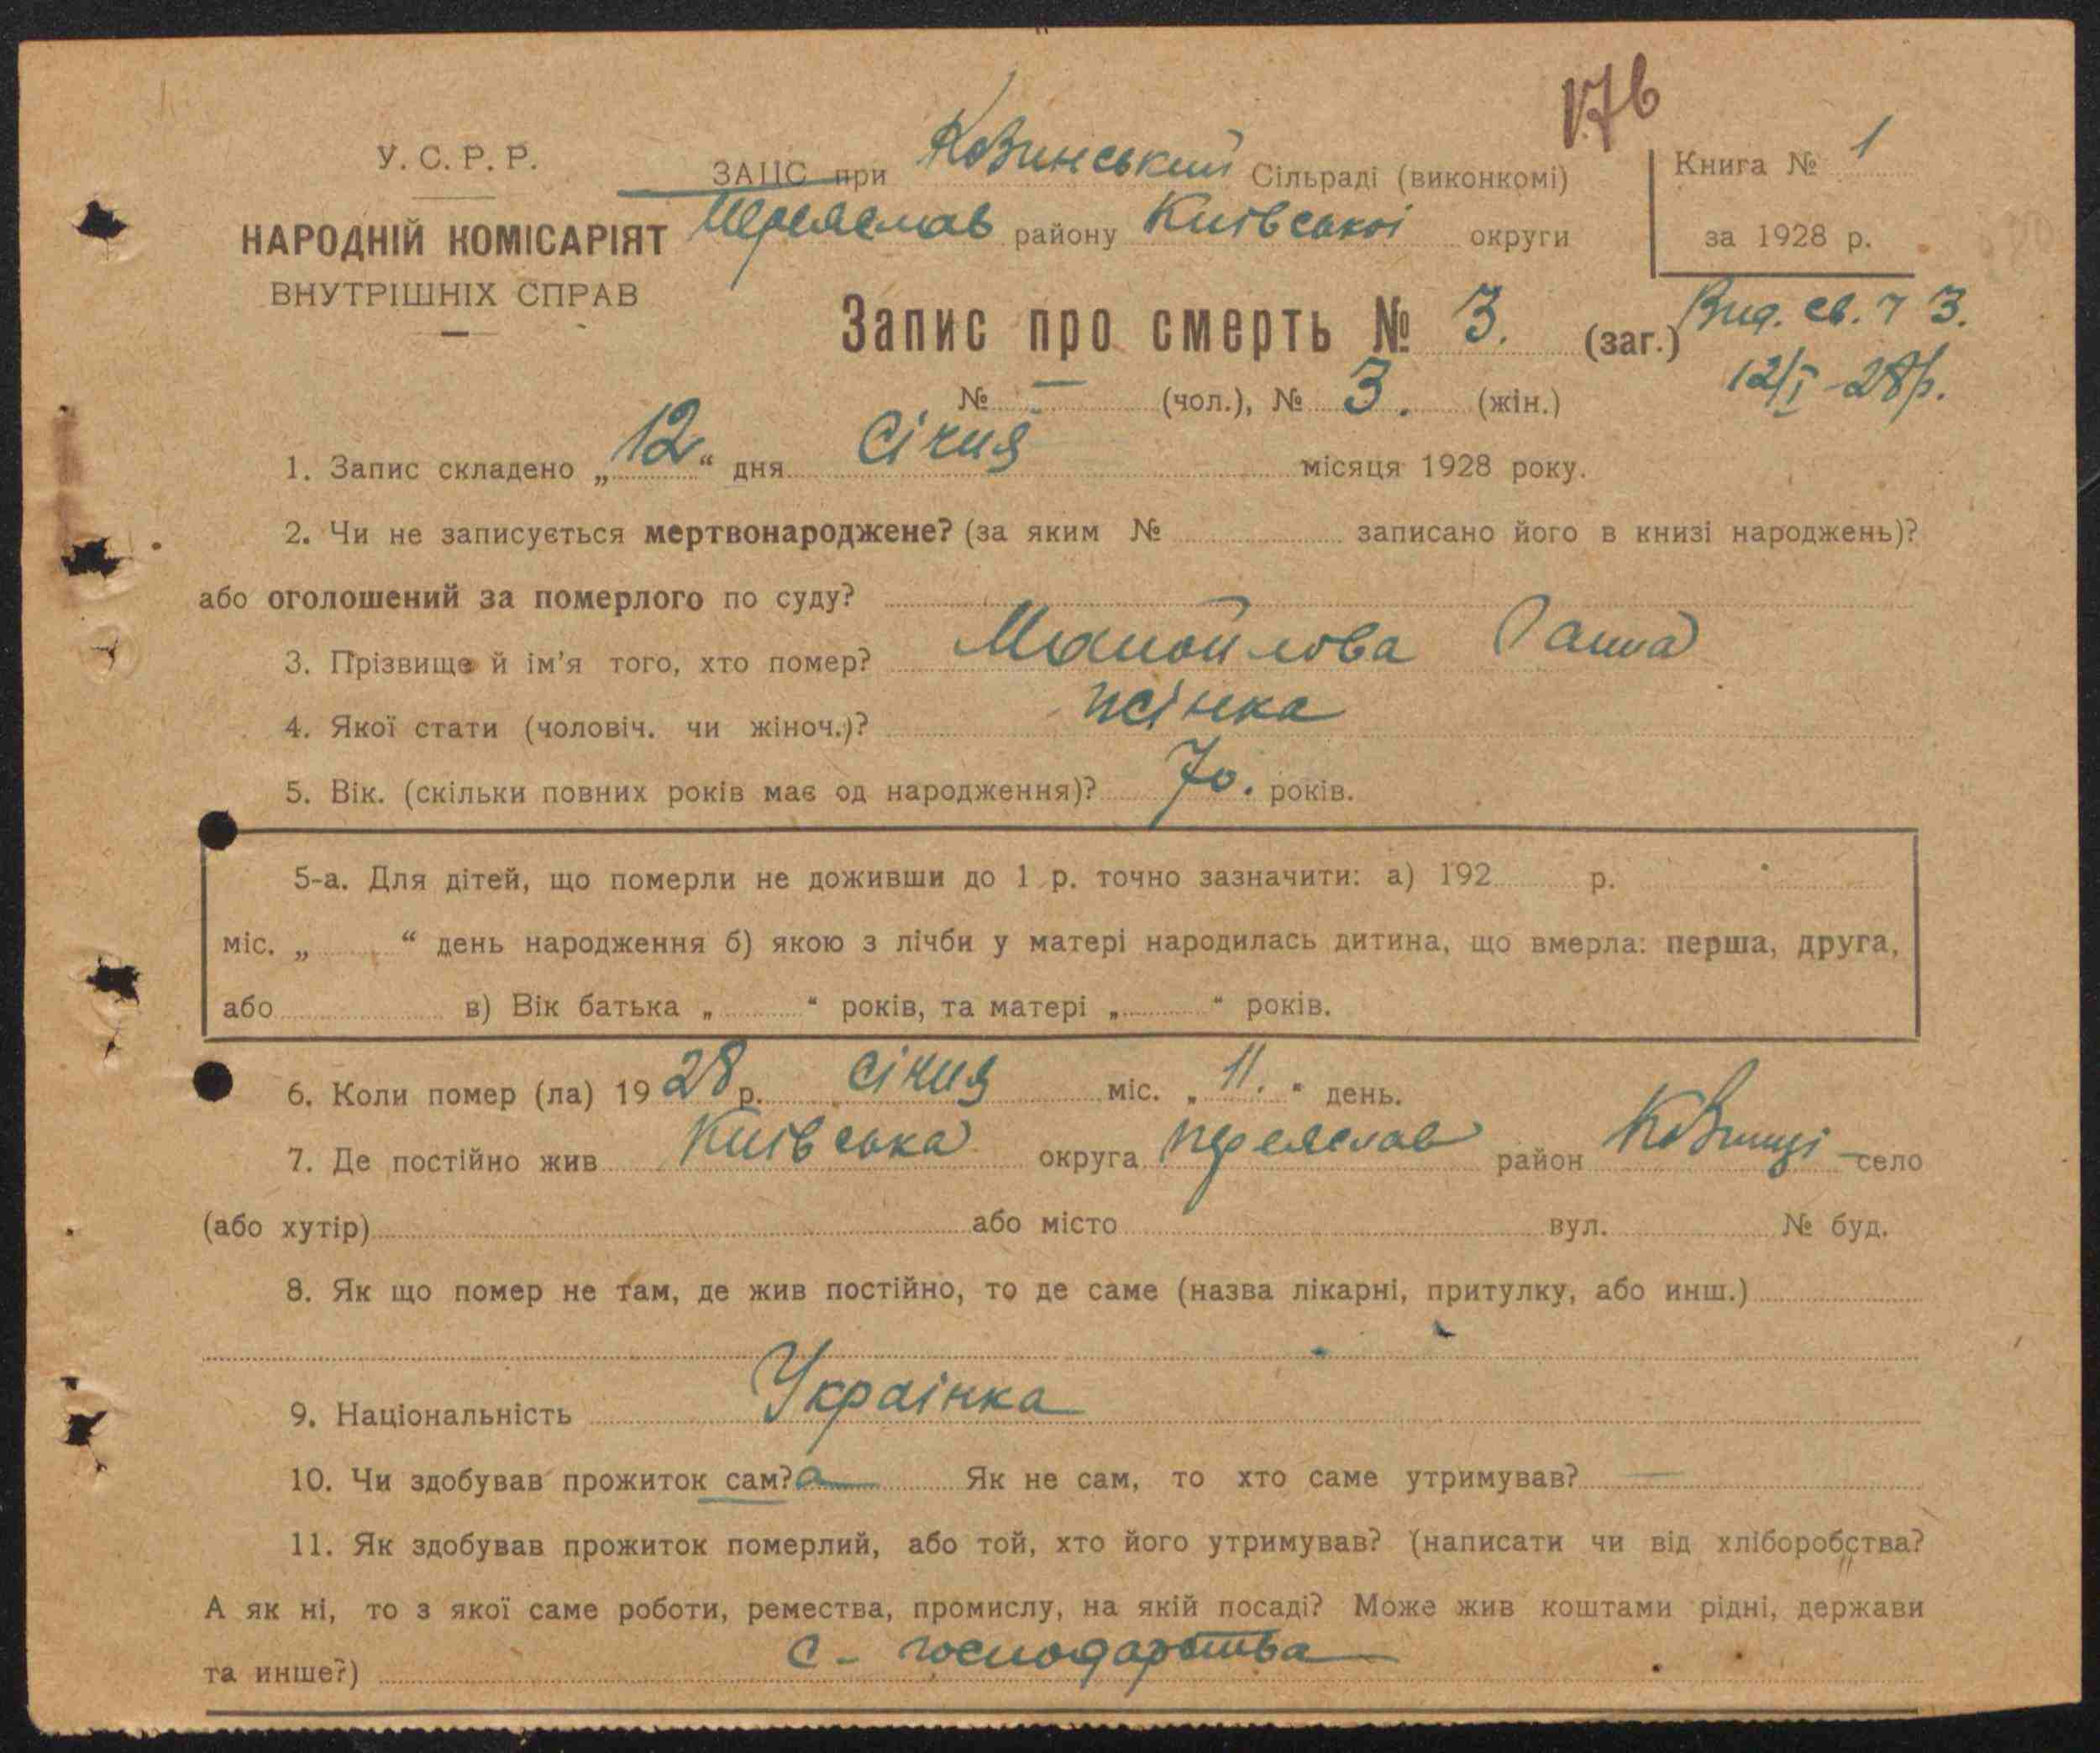 176
У. С. Р. Р.
ЗАГС при Ковинський Сільраді (виконкомі)
Книга № 1
НАРОДНІЙ КОМІСАРІЯТ
Переяслав району Київської округи
за 1928 р.
ВНУТРІШНІХ СПРАВ
Запис про смерть № 3. (заг.)
Вид. св. ч 3.
12/I-28р.
№ — (чол.), № 3. (жін.)
1. Запис складено „12“ дня Січня місяця 1928 року.
2. Чи не записується мертвонароджене? (за яким № записано його в книзі народжень)?
або оголошений за померлого по суду?
3. Прізвище й ім’я того, хто помер? Манойлова Ганна
4. Якої стати (чоловіч. чи жіноч.)? жінка
5. Вік. (скільки повних років має од народження)? 70. років.
5-а. Для дітей, що померли не доживши до 1 р. точно зазначити: а) 192 р.
міс. „ “ день народження б) якою з лічби у матері народилась дитина, що вмерла: перша, друга,
або в) Вік батька „ “ років, та матері „ “ років.
6. Коли помер (ла) 1928 р. січня міс. „11.“ день.
7. Де постійно жив Київська округа Переяслав район Ковинці село
(або хутір) або місто вул. № буд.
8. Як що помер не там, де жив постійно, то де саме (назва лікарні, притулку, або инш.)
9. Національність Українка
10. Чи здобував прожиток сам?а Як не сам, то хто саме утримував? —
11. Як здобував прожиток померлий, або той, хто його утримував? (написати чи від хліборобства?
А як ні, то з якої саме роботи, ремества, промислу, на якій посаді? Може жив коштами рідні, держави
та инше?) С - господарства